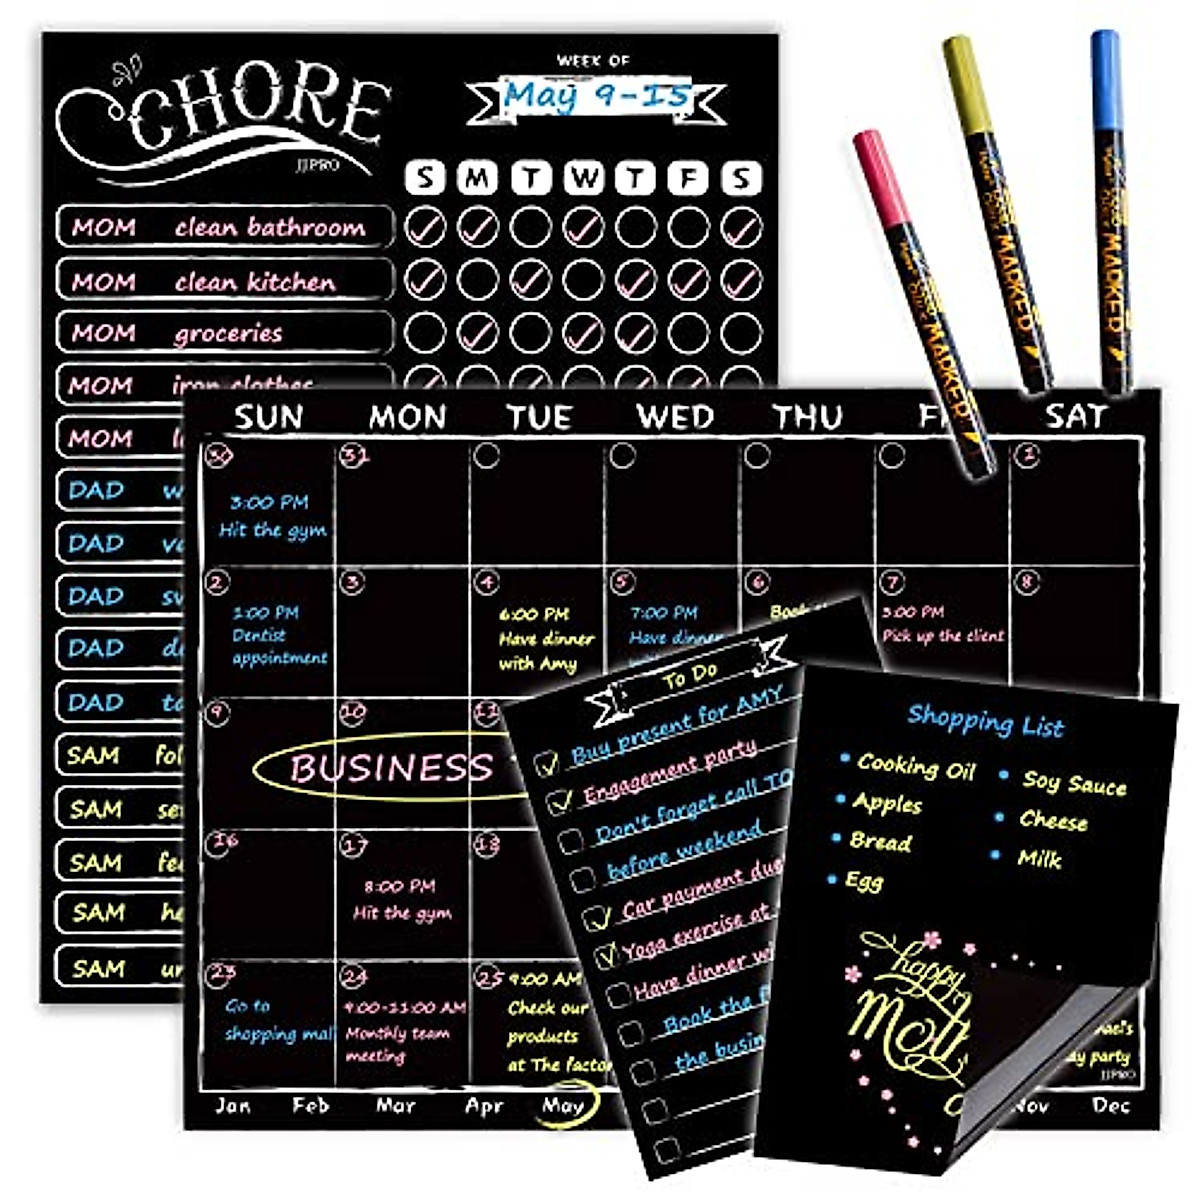 CHORE
JJPRO
WEEK OF
May 9-15
S M T W T F S
MOM clean bathroom
MOM clean kitchen
MOM groceries
MOM iron clothes
MOM
DAD
DAD
DAD
DAD
DAD
SAM
SAM
SAM
SAM
SAM
MARKER
MARKER
MARKER
SUN MON TUE WED THU SAT
30 31 1
3:00 PM
Hit the gym
2 3 4 5 6 7 8
1:00 PM
Dentist
appointment
6:00 PM
Have dinner
with Amy
7:00 PM
Have dinner
Book
3:00 PM
Pick up the client
9 10 11
BUSINESS
16 17 18
8:00 PM
Hit the gym
23 24 25
Go to
shopping mall
9:00-11:00 AM
Monthly team
meeting
9:00 AM
Check our
products
at The
party
JJPRO
Jan Feb Mar Apr May Nov Dec
To Do
Buy present for AMY
Engagement party
Don't forget call
before weekend
Car payment due
Yoga exercise at
Have dinner
Book the
the
Shopping List
Cooking Oil
Apples
Bread
Egg
Soy Sauce
Cheese
Milk
happy